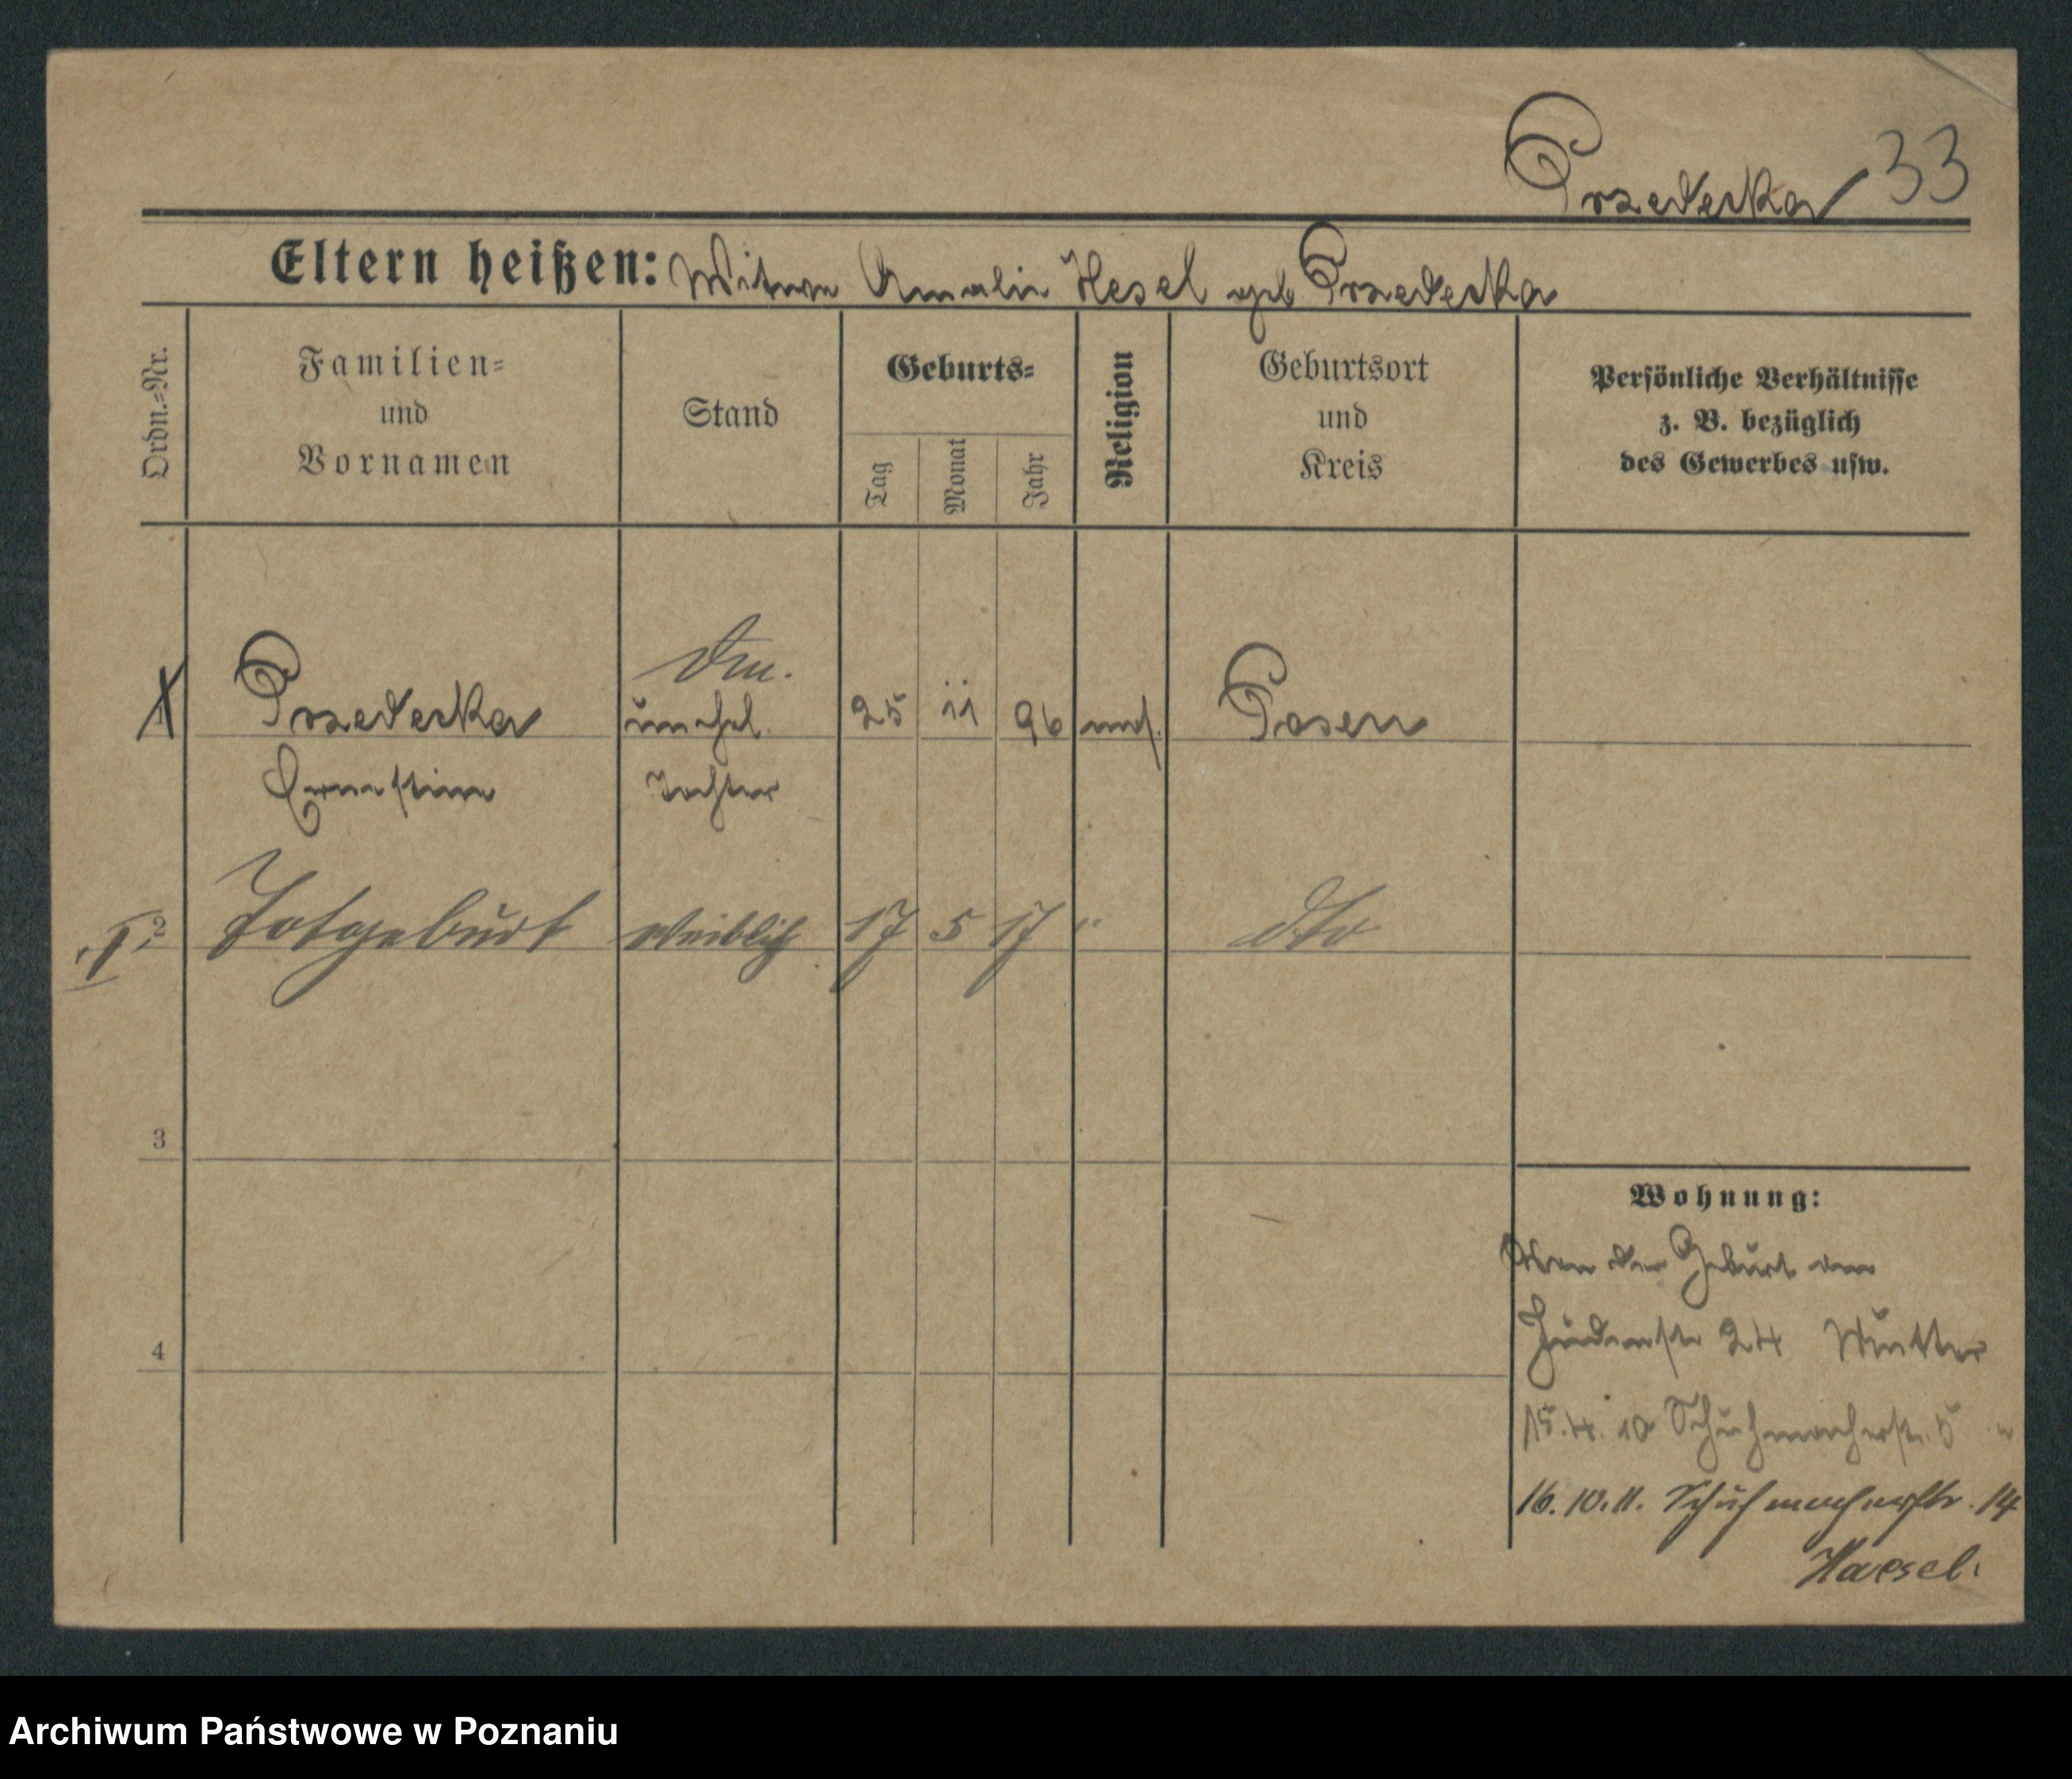 Przedecka 33
Eltern heißen: Witwe Amalie Hesel geb Przedecka
Ordn.-Nr.
Familien-
und
Vornamen
Stand
Geburts-
Tag
Monat
Jahr
Religion
Geburtsort
und
Kreis
Persönliche Verhältnisse
z. B. bezüglich
des Gewerbes usw.
unehel. 25 11 96 mos. Posen
Przedecka
Ernestine Tochter
2 Totgeburt weiblich 17 5 17 " dto
3
4
Wohnung:
Von der Geburt an
Judenstr 24 Mutter
15.4.10 Schuhmacherstr. 5
16.10.11. Schuhmacherstr. 14
Haesel.
Archiwum Państwowe w Poznaniu